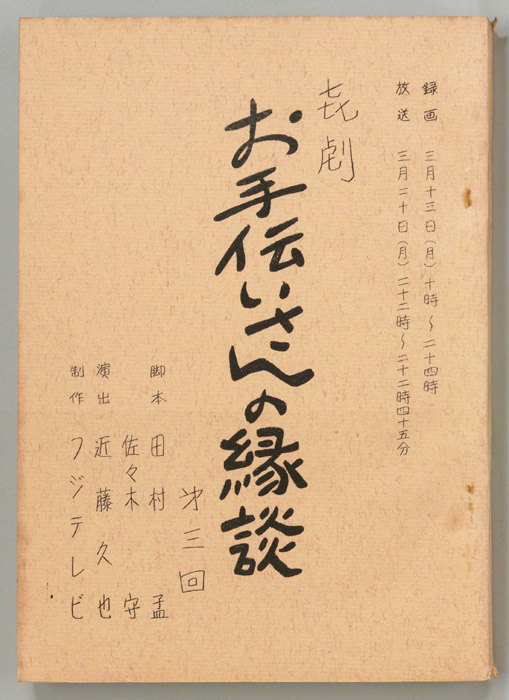 録画 三月十三日(月)十時~二十四時
放送 三月二十日(月)二十二時~二十二時四十五分
㐂劇
お手伝いさんの縁談
㐧三回
脚本 田村 孟
佐々木 守
演出 近藤久也
制作 フジテレビ